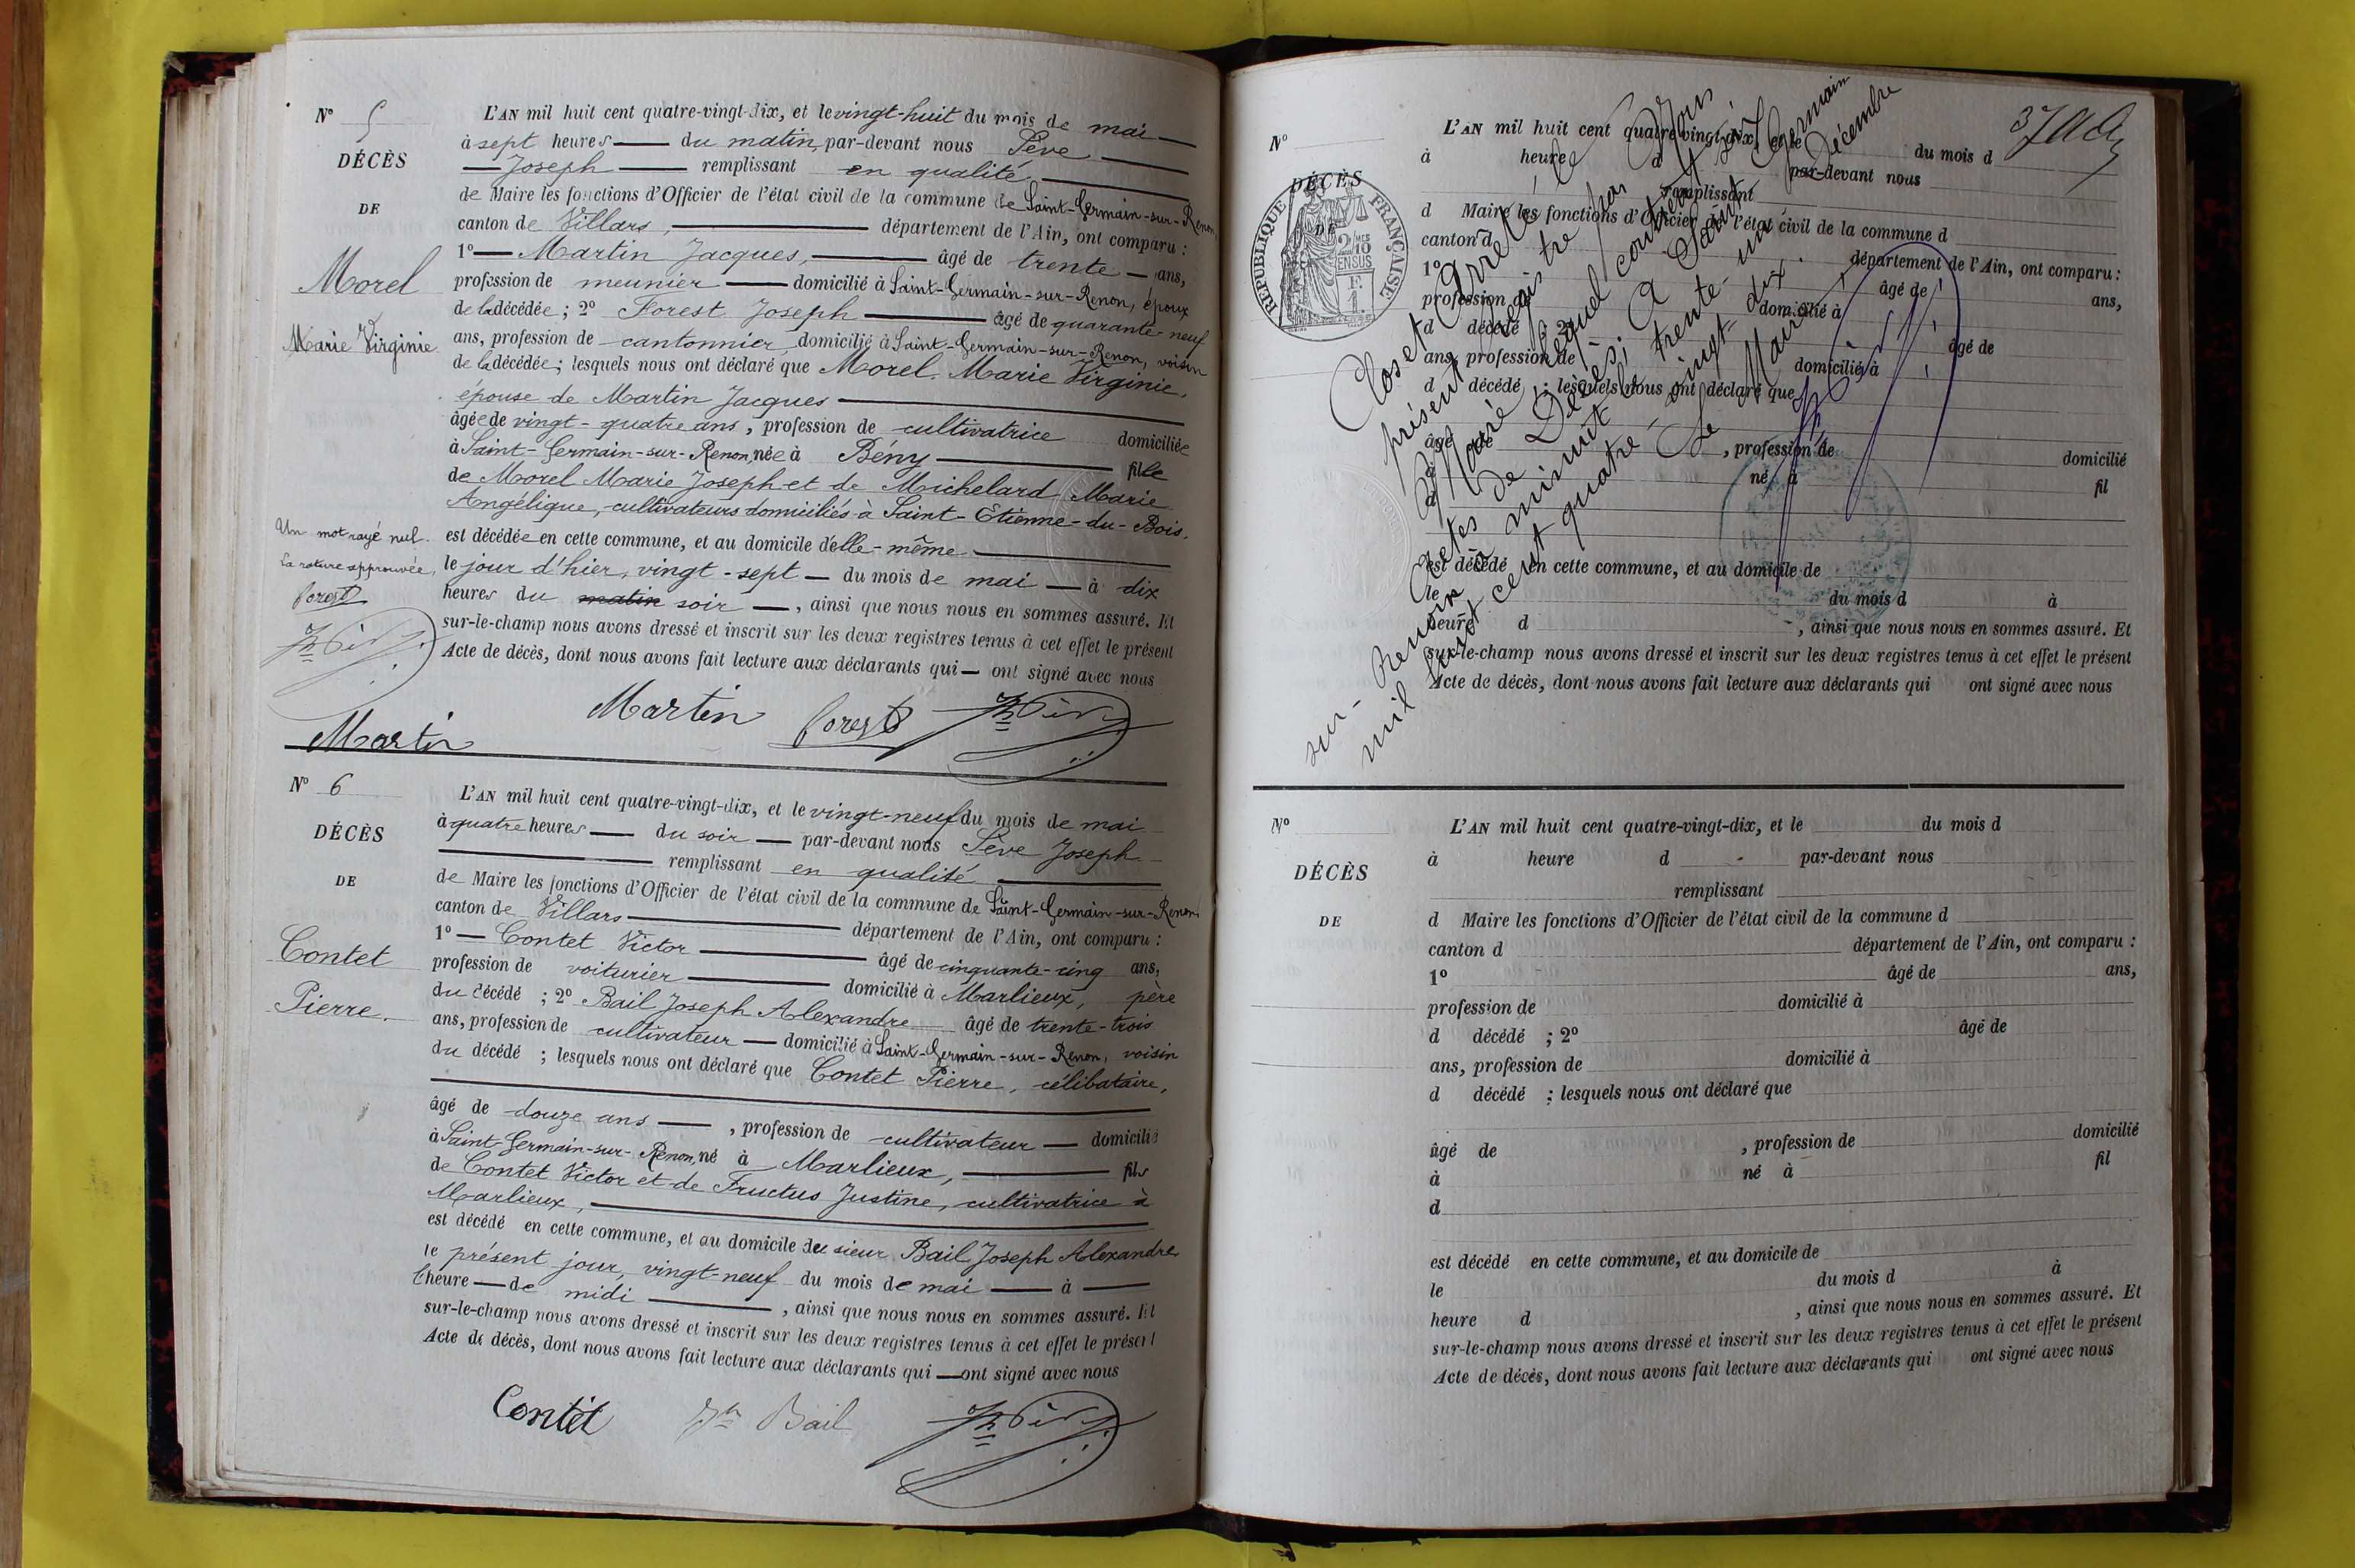 N° 5
DÉCÈS
DE
Morel
Marie Virginie
Un mot rayé nul.
La rature approuvée,
Forest
Martin
L'AN mil huit cent quatre-vingt-dix, et le vingt-huit du mois de mai —
à sept heures — du matin, par-devant nous Sève —
— Joseph — remplissant en qualité —
de Maire les fonctions d'Officier de l'état civil de la commune de Saint-Germain-sur-Renon,
canton de Villars, — département de l'Ain, ont comparu :
1° — Martin Jacques, — âgé de trente — ans,
profession de meunier — domicilié à Saint-Germain-sur-Renon, époux
de la décédée ; 2° Forest Joseph — âgé de quarante-neuf
ans, profession de cantonnier, domicilié à Saint-Germain-sur-Renon, voisin
de la décédée ; lesquels nous ont déclaré que Morel, Marie Virginie,
épouse de Martin Jacques —
âgée de vingt-quatre ans, profession de cultivatrice domiciliée
à Saint-Germain-sur-Renon, née à Bény — fille
de Morel Marie Joseph et de Michelard Marie
Angélique, cultivateurs domiciliés à Saint-Etienne-du-Bois,
est décédée en cette commune, et au domicile d'elle-même —
le jour d'hier, vingt-sept — du mois de mai — à dix
heures du matin soir —, ainsi que nous nous en sommes assuré. Et
sur-le-champ nous avons dressé et inscrit sur les deux registres tenus à cet effet le présent
Acte de décès, dont nous avons fait lecture aux déclarants qui — ont signé avec nous
Martin Forest Jh Sève
N° 6
DÉCÈS
DE
Contet
Pierre.
L'AN mil huit cent quatre-vingt-dix, et le vingt-neuf du mois de mai
à quatre heures — du soir — par-devant nous Sève Joseph
— remplissant en qualité —
de Maire les fonctions d'Officier de l'état civil de la commune de Saint-Germain-sur-Renon
canton de Villars — département de l'Ain, ont comparu :
1° — Contet Victor — âgé de cinquante-cinq ans,
profession de voiturier — domicilié à Marlieux, père
du décédé ; 2° Bail Joseph Alexandre âgé de trente-trois
ans, profession de cultivateur — domicilié à Saint-Germain-sur-Renon, voisin
du décédé ; lesquels nous ont déclaré que Contet Pierre, célibataire,
âgé de douze ans —, profession de cultivateur — domicilié
à Saint-Germain-sur-Renon, né à Marlieux, — fils
de Contet Victor et de Fructus Justine, cultivatrice à
Marlieux, —
est décédé en cette commune, et au domicile du sieur Bail Joseph Alexandre
le présent jour, vingt-neuf du mois de mai — à —
l'heure — de midi —, ainsi que nous nous en sommes assuré. Et
sur-le-champ nous avons dressé et inscrit sur les deux registres tenus à cet effet le présent
Acte de décès, dont nous avons fait lecture aux déclarants qui — ont signé avec nous
Contet Jh Bail Jh Sève
N°
DÉCÈS
DE
RÉPUBLIQUE FRANÇAISE
2/10 EN SUS
L'AN mil huit cent quatre-vingt-dix, et le du mois d
à heure d par-devant nous
remplissant
d Maire les fonctions d'Officier de l'état civil de la commune d
canton d département de l'Ain, ont comparu :
1° âgé de ans,
profession de domicilié à
d décédé ; 2° âgé de
ans, profession de domicilié à
d décédé ; lesquels nous ont déclaré que
âgé de , profession de domicilié
à né à fil
d
est décédé en cette commune, et au domicile de
le du mois d à
heure d , ainsi que nous nous en sommes assuré. Et
sur-le-champ nous avons dressé et inscrit sur les deux registres tenus à cet effet le présent
Acte de décès, dont nous avons fait lecture aux déclarants qui ont signé avec nous
Clos et Arrêté le
présent registre par Nous
Maire, lequel contient six
Actes de Décès; A Saint Germain
sur-Renon à minuit le trente-un Décembre
mil huit cent quatre-vingt-dix.
Le Maire,
N°
DÉCÈS
DE
L'AN mil huit cent quatre-vingt-dix, et le du mois d
à heure d par-devant nous
remplissant
d Maire les fonctions d'Officier de l'état civil de la commune d
canton d département de l'Ain, ont comparu :
1° âgé de ans,
profession de domicilié à
d décédé ; 2° âgé de
ans, profession de domicilié à
d décédé ; lesquels nous ont déclaré que
âgé de , profession de domicilié
à né à fil
d
est décédé en cette commune, et au domicile de
le du mois d à
heure d , ainsi que nous nous en sommes assuré. Et
sur-le-champ nous avons dressé et inscrit sur les deux registres tenus à cet effet le présent
Acte de décès, dont nous avons fait lecture aux déclarants qui ont signé avec nous